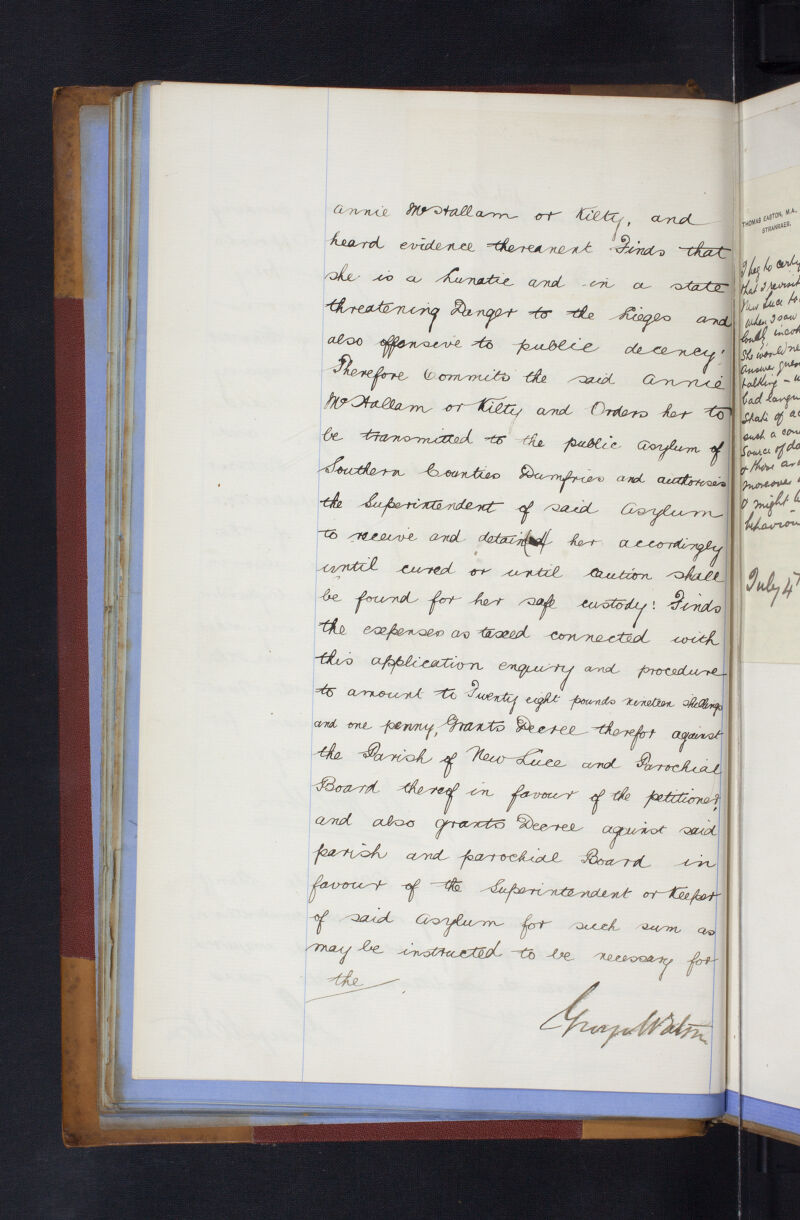 Annie McHallam or Kilty, and
heard evidence thereanent Finds that
she is a Lunatic and in a state
threatening Danger to the Lieges and
also offensive to public decency:
Therefore Commits the said Annie
McHallam or Kilty and Orders her to
be transmitted to the public Asylum of
Southern Counties Dumfries and authorises
the Superintendent of said Asylum
to receive and detain(ed) her accordingly
until cured or until caution shall
be found for her safe custody: Finds
the expenses as taxed connected with
this application enquiry and procedure
to amount to Twenty eight pounds nineteen shillings
and one penny, Grants Decree therefor against
the Parish of New Luce and Parochial
Board thereof in favour of the petitioner,
and also grants Decree against said
parish and parochial Board in
favour of the Superintendent or Keeper
of said Asylum for such sum as
may be instructed to be necessary for
the
George Watson
THOMAS EASTON, M.A.
STRANRAER.
I beg to certify
that I
New Luce to
when I saw
She would
answer
talking
bad
State of
such a
Source of
& those
moreover
& might
behaviour
July 4